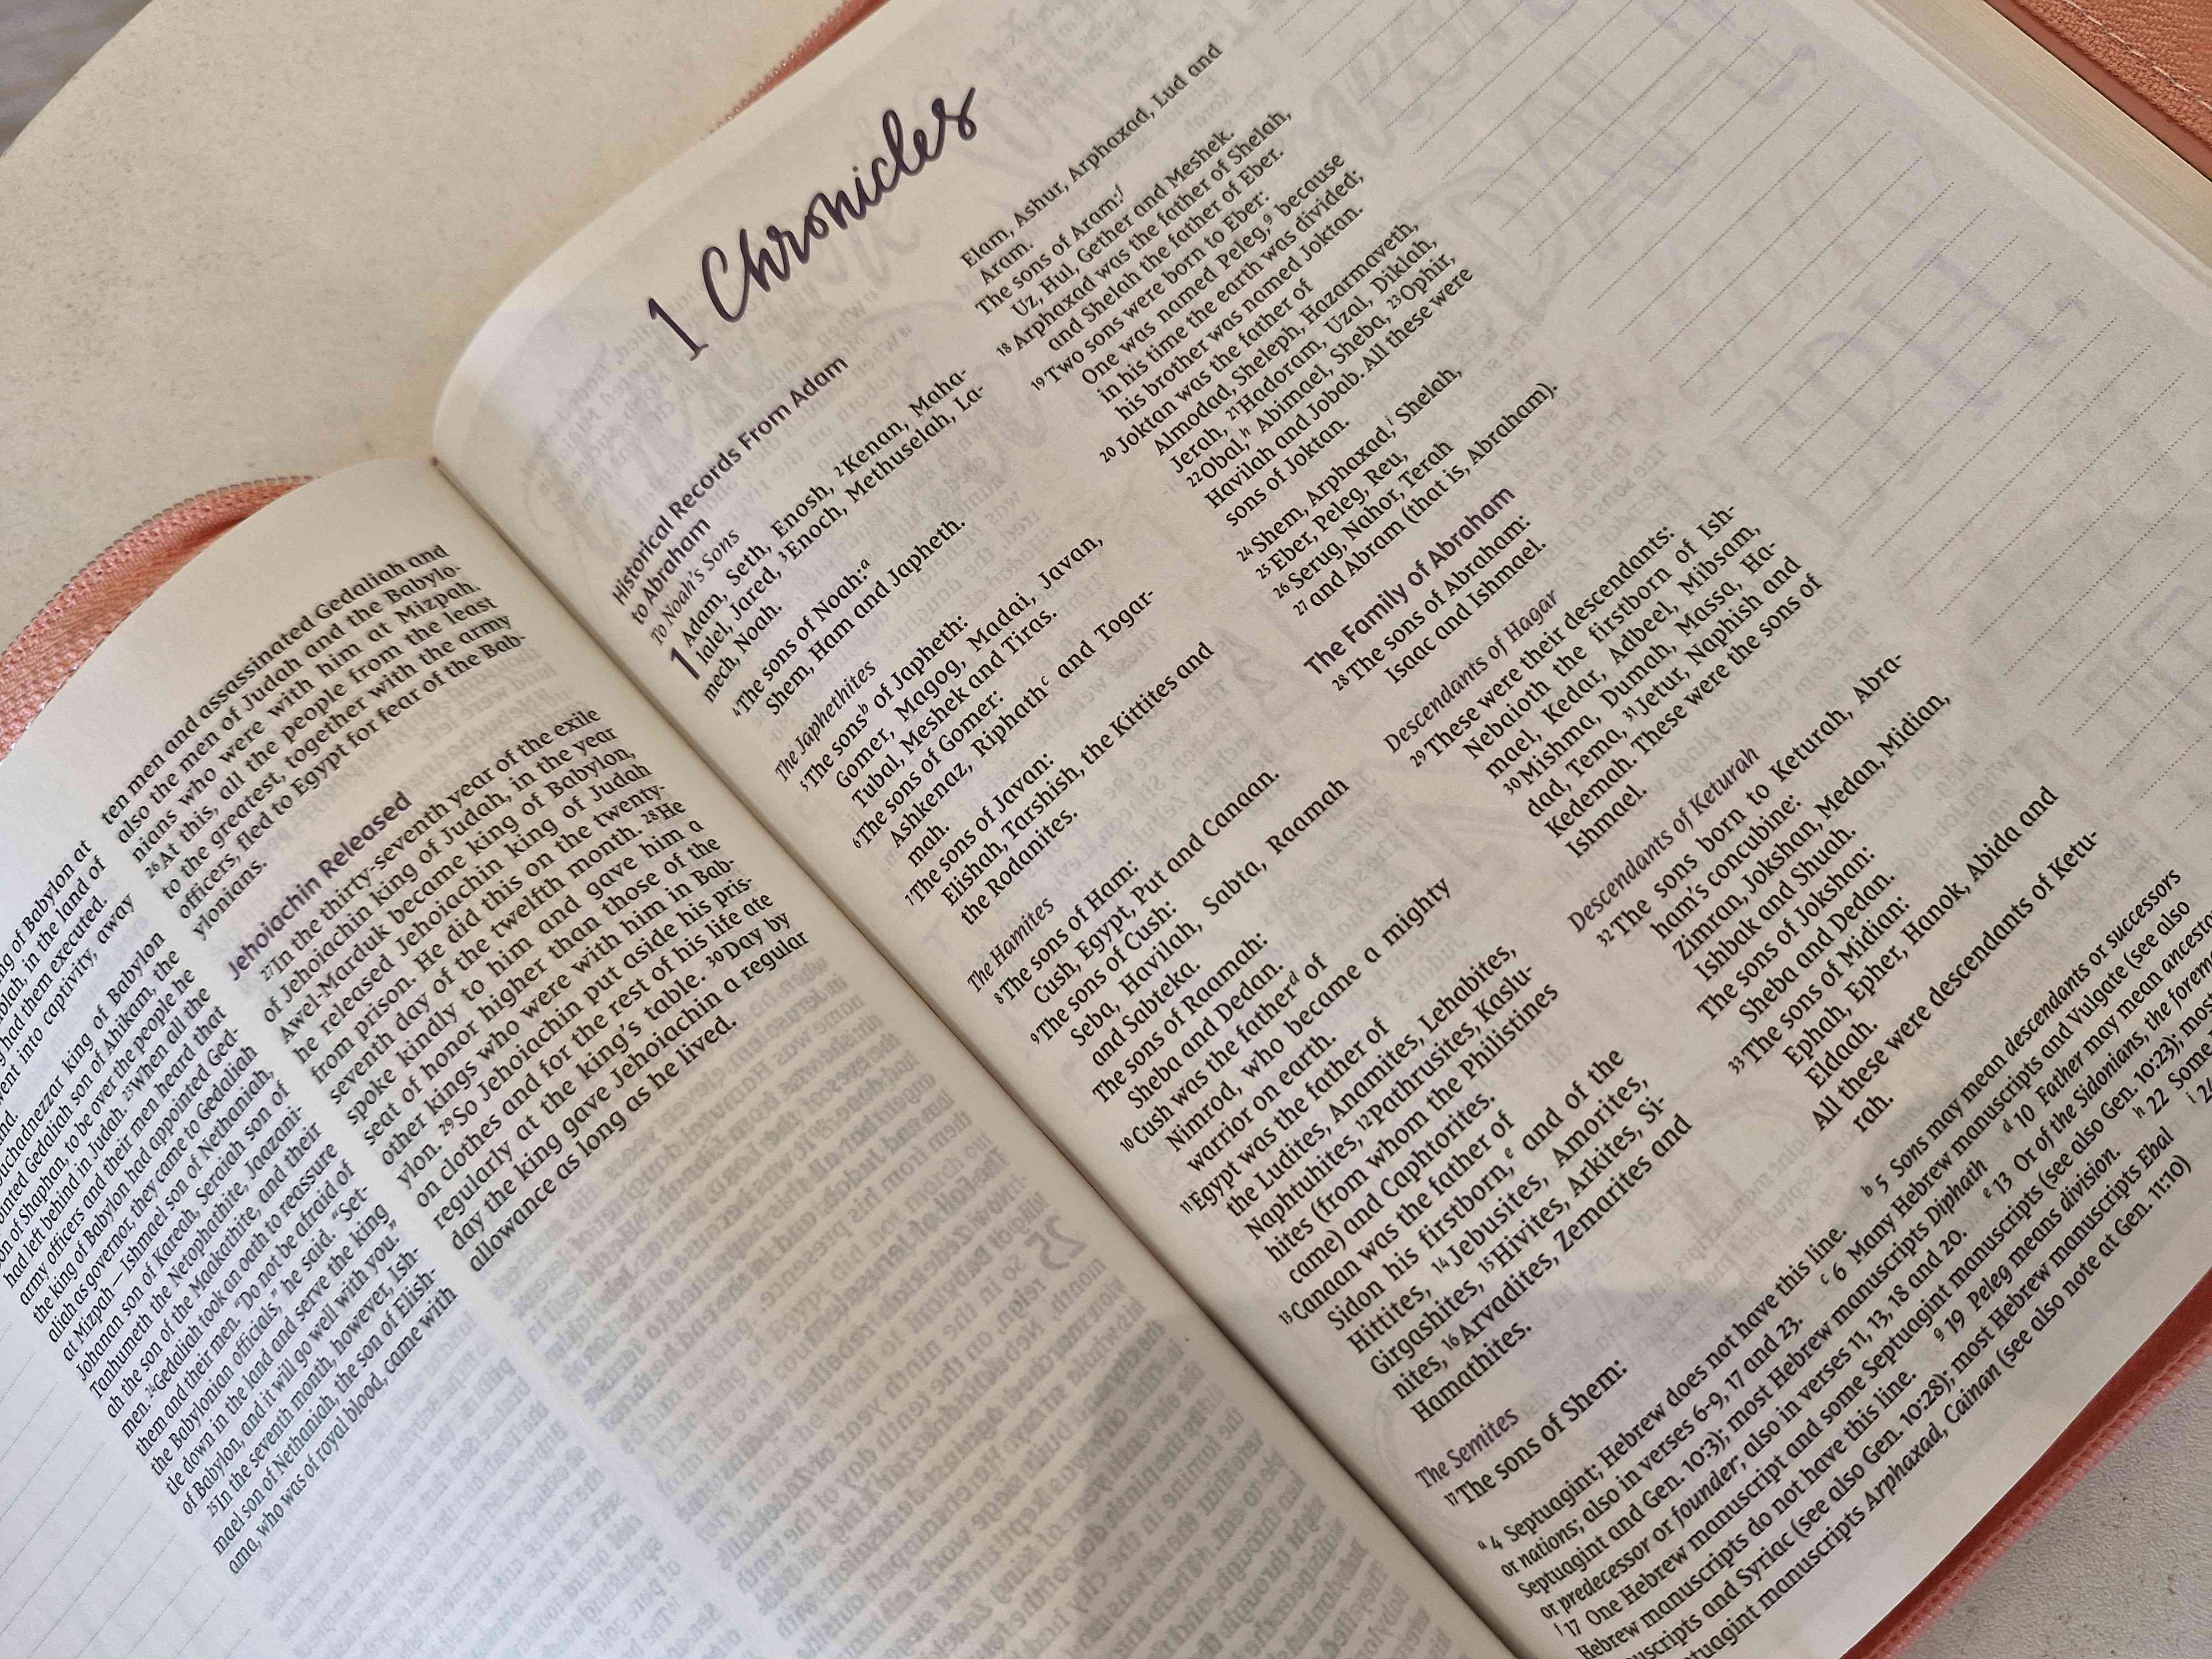 ng of Babylon at
blah, in the land of
had them executed.
went into captivity, away
nd.
uchadnezzar king of Babylon
inted Gedaliah son of Ahikam, the
on of Shaphan, to be over the people he
had left behind in Judah. 23When all the
army officers and their men heard that
the king of Babylon had appointed Ged-
aliah as governor, they came to Gedaliah
at Mizpah—Ishmael son of Nethaniah,
Johanan son of Kareah, Seraiah son of
Tanhumeth the Netophathite, Jaazani-
ah the son of the Maakathite, and their
men. 24Gedaliah took an oath to reassure
them and their men. “Do not be afraid of
the Babylonian officials,” he said. “Set-
tle down in the land and serve the king
of Babylon, and it will go well with you.”
25In the seventh month, however, Ish-
mael son of Nethaniah, the son of Elish-
ama, who was of royal blood, came with
ten men and assassinated Gedaliah and
also the men of Judah and the Babylo-
nians who were with him at Mizpah.
26At this, all the people from the least
to the greatest, together with the army
officers, fled to Egypt for fear of the Bab-
ylonians.
Jehoiachin Released
27In the thirty-seventh year of the exile
of Jehoiachin king of Judah, in the year
Awel-Marduk became king of Babylon,
he released Jehoiachin king of Judah
from prison. He did this on the twenty-
seventh day of the twelfth month. 28He
spoke kindly to him and gave him a
seat of honor higher than those of the
other kings who were with him in Bab-
ylon. 29So Jehoiachin put aside his pris-
on clothes and for the rest of his life ate
regularly at the king’s table. 30Day by
day the king gave Jehoiachin a regular
allowance as long as he lived.
1 Chronicles
Historical Records From Adam
to Abraham
To Noah’s Sons
1 Adam, Seth, Enosh, 2Kenan, Maha-
lalel, Jared, 3Enoch, Methuselah, La-
mech, Noah.
4The sons of Noah:a
Shem, Ham and Japheth.
The Japhethites
5The sonsb of Japheth:
Gomer, Magog, Madai, Javan,
Tubal, Meshek and Tiras.
6The sons of Gomer:
Ashkenaz, Riphathc and Togar-
mah.
7The sons of Javan:
Elishah, Tarshish, the Kittites and
the Rodanites.
The Hamites
8The sons of Ham:
Cush, Egypt, Put and Canaan.
9The sons of Cush:
Seba, Havilah, Sabta, Raamah
and Sabteka.
The sons of Raamah:
Sheba and Dedan.
10Cush was the fatherd of
Nimrod, who became a mighty
warrior on earth.
11Egypt was the father of
the Ludites, Anamites, Lehabites,
Naphtuhites, 12Pathrusites, Kaslu-
hites (from whom the Philistines
came) and Caphtorites.
13Canaan was the father of
Sidon his firstborn,e and of the
Hittites, 14Jebusites, Amorites,
Girgashites, 15Hivites, Arkites, Si-
nites, 16Arvadites, Zemarites and
Hamathites.
The Semites
17The sons of Shem:
Elam, Ashur, Arphaxad, Lud and
Aram.
The sons of Aram:f
Uz, Hul, Gether and Meshek.
18Arphaxad was the father of Shelah,
and Shelah the father of Eber.
19Two sons were born to Eber:
One was named Peleg,g because
in his time the earth was divided;
his brother was named Joktan.
20Joktan was the father of
Almodad, Sheleph, Hazarmaveth,
Jerah, 21Hadoram, Uzal, Diklah,
22Obal,h Abimael, Sheba, 23Ophir,
Havilah and Jobab. All these were
sons of Joktan.
24Shem, Arphaxad,i Shelah,
25Eber, Peleg, Reu,
26Serug, Nahor, Terah
27and Abram (that is, Abraham).
The Family of Abraham
28The sons of Abraham:
Isaac and Ishmael.
Descendants of Hagar
29These were their descendants:
Nebaioth the firstborn of Ish-
mael, Kedar, Adbeel, Mibsam,
30Mishma, Dumah, Massa, Ha-
dad, Tema, 31Jetur, Naphish and
Kedemah. These were the sons of
Ishmael.
Descendants of Keturah
32The sons born to Keturah, Abra-
ham’s concubine:
Zimran, Jokshan, Medan, Midian,
Ishbak and Shuah.
The sons of Jokshan:
Sheba and Dedan.
33The sons of Midian:
Ephah, Epher, Hanok, Abida and
Eldaah.
All these were descendants of Ketu-
rah.
a 4 Septuagint; Hebrew does not have this line. b 5 Sons may mean descendants or successors
or nations; also in verses 6-9, 17 and 23. c 6 Many Hebrew manuscripts and Vulgate (see also
Septuagint and Gen. 10:3); most Hebrew manuscripts Diphath d 10 Father may mean
or predecessor or founder; also in verses 11, 13, 18 and 20. e 13 Or of the Sidonians, the
f 17 One Hebrew manuscript and some Septuagint manuscripts (see also Gen. 10:23); most
Hebrew manuscripts do not have this line. g 19 Peleg means division. h 22 Some
and Syriac (see also Gen. 10:28); most Hebrew manuscripts Ebal
manuscripts Arphaxad, Cainan (see also note at Gen. 11:10)